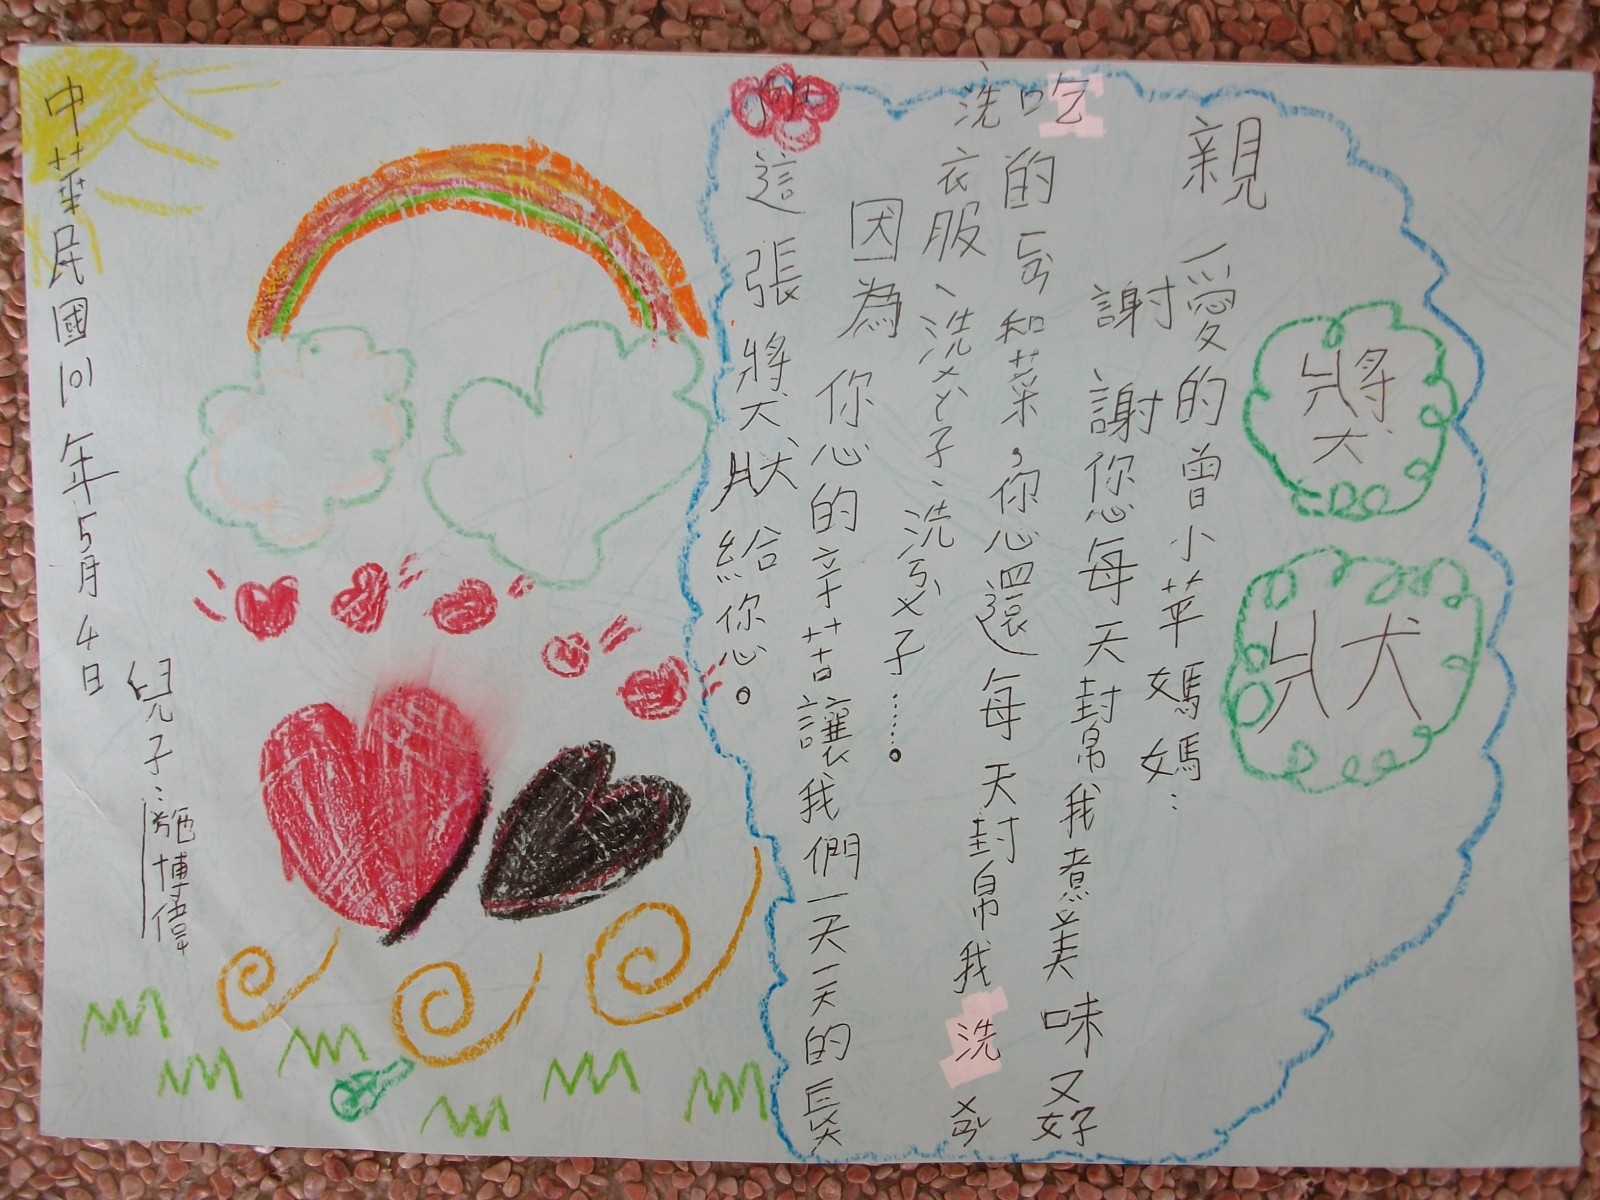 獎
狀
親愛的曾小苹媽媽：
謝謝您每天幫我煮美味又好
吃的ㄈㄢˋ和菜，您還每天幫我洗ㄨㄢˇ
、洗衣服、洗ㄨㄚˋ子、洗ㄎㄨˋ子……。
因為您的辛苦讓我們一天一天的長大
這張獎狀給您。
中華民國101年5月4日
兒子：施博偉